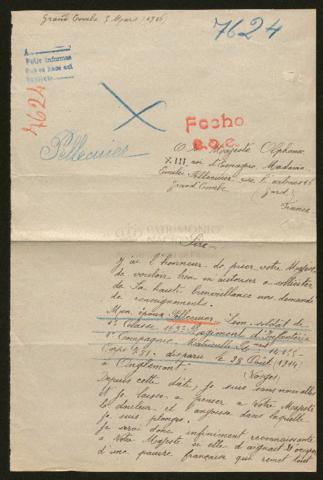 Grand Combe 3 Mars 1916
7624
A
Pide informes
7624
Pellecuier
Fecho
S.O.C.
A Sa Majesté Alphonse
XIII, roi d'Espagne, Madame
Emilie Pellecuier rue
Grand Combe Gard
France
PATRIMONIO
NACIONAL
Sire
J'ai l'honneur de prier votre Majesté
de vouloir bien m'autoriser à solliciter
de Sa haute bienveillance une demande
de renseignements.
Mon époux Pellecuier Léon, soldat de
Classe Régiment d'Infanterie
Compagnie Matricule
disparu le 28 Août (1914)
à (Vosges)
Depuis cette date je suis sans nouvelles
et je laisse à penser à Votre Majesté
la douleur et l'angoisse dans laquelle
je suis plongée.
Je serai donc infiniment reconnaissante
à Votre Majesté si elle daignait s'occuper
d'une pauvre française qui remet tout